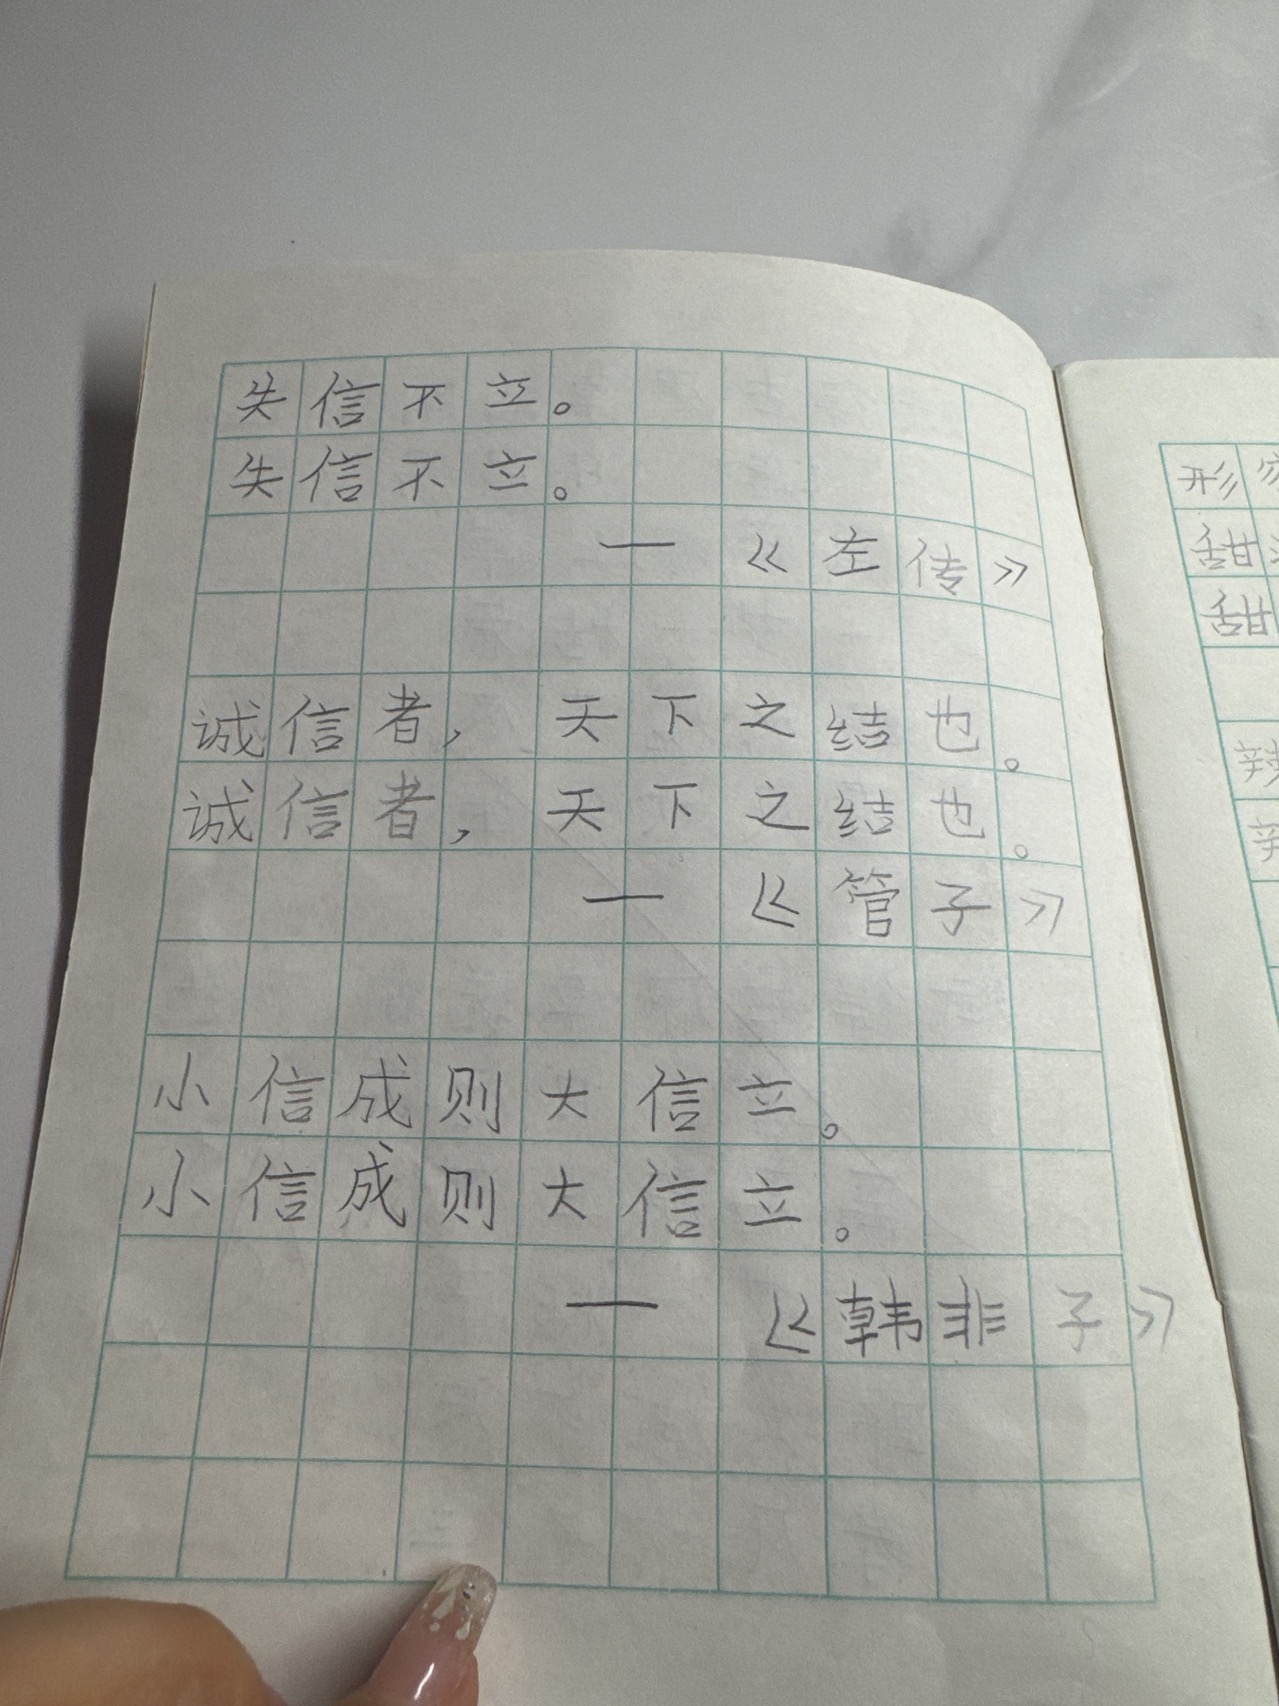 失信不立。
失信不立。
—《左传》
诚信者，天下之结也。
诚信者，天下之结也。
—《管子》
小信成则大信立。
小信成则大信立。
—《韩非子》
形
甜
甜
辣